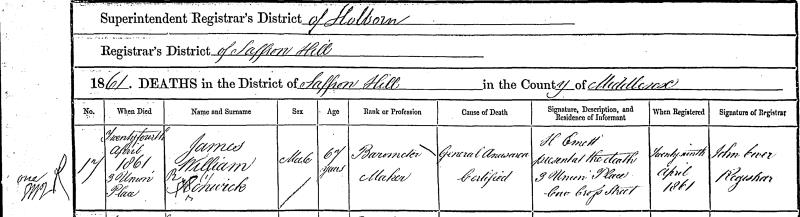 Superintendent Registrar's District of Holborn
Registrar's District of Saffron Hill
1861. DEATHS in the District of Saffron Hill in the County of Middlesex
No. When Died Name and Surname Sex Age Rank or Profession Cause of Death Signature, Description, and Residence of Informant When Registered Signature of Registrar
17
Twentyfourth
April
1861
3 Union
Place
James
William
Male
67
years
Barometer
Maker
General Anasarca
Certified
H Emett
present at the death
3 Union Place
Cross Street
Twenty ninth
April
1861
John
Registrar